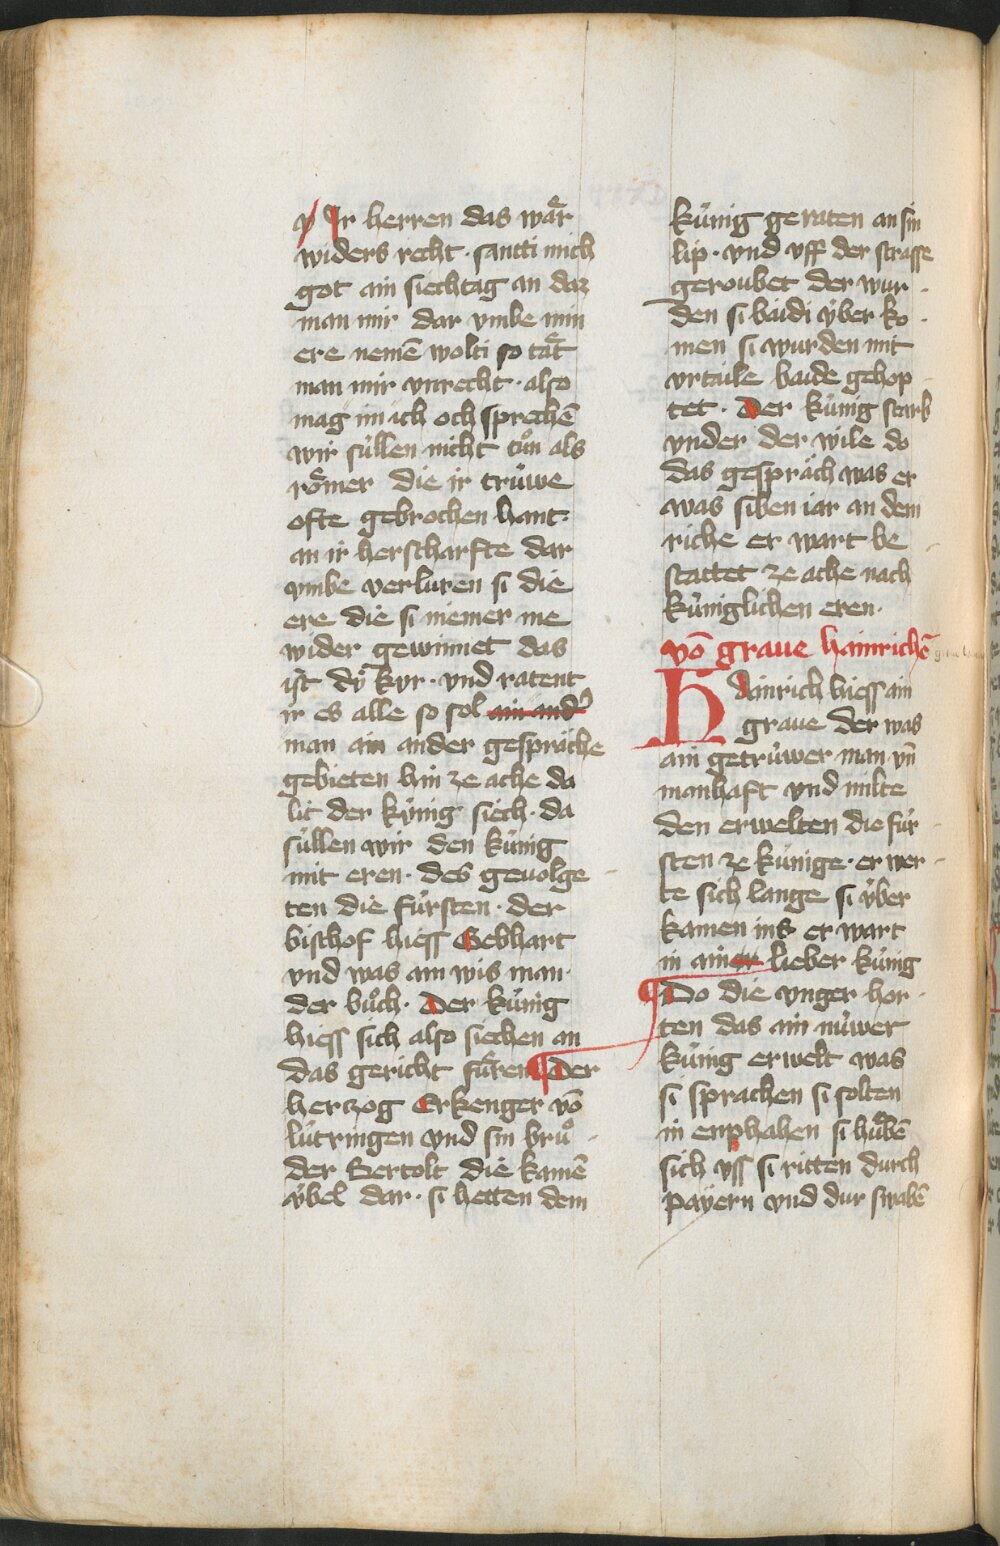 Ir herren das waͤr
widers recht · santti mich
got ain siechtag an daz
man mir dar vmbe min
ere nemē wolti so taͤt
man mir vnrecht · also
mag im ich och sprechē
wir súllen nicht tuͦn als
roͤmer die ir trúwe
ofte gebrochen hant ·
an ir herscharfte dar
vmbe verluren si die
ere die si niemer me
wider gewinnet das
ist dӱ kyr · vnd ratent
ir es alle so sol ain and͛
man ain ander gespraͤche
gebieten hin ze ache da
lit der kúnig siech · da
súllen wir den kúnig
mit eren · des geuolge
ten die fúrsten · der
bischof hiess Gebhart
vnd was ain wis man ·
der buͦch · Der kúnig
hiess sich also siechen an
das gericht fuͤren ¶ Der
herczog Erkenger vō
lútringen vnd sin bruͦ
der Bertolt die kamē
v́bel dar · si hetten dem
kúnig geraten an sin
lip · vnd vff der strasse
geroubet der wur
den si baidi v́ber ko
men si wurden mit
vrtaile baide gehop
tet · Der kúnig starb
vnder der wile do
das gespräch was er
was siben iar an dem
riche er wart be
stattet ze ache nach
kúniglichen eren ·
vō graue hainrichē
Hainrich hiess ain
graue der was
ain getrúwer man vn̄
manhaft vnd milte
den erwelten die fúr
sten ze kúnige · er wer
te sich lange si v́ber
kamen ins er wart
in ainer lieber kúnig
¶ Do die vnger hor
ten das ain núwer
kúnig erwelt was
si sprachen si solten
in enphahen si huͦbē
sich vff si ritten durch
payern vnd dur swabē